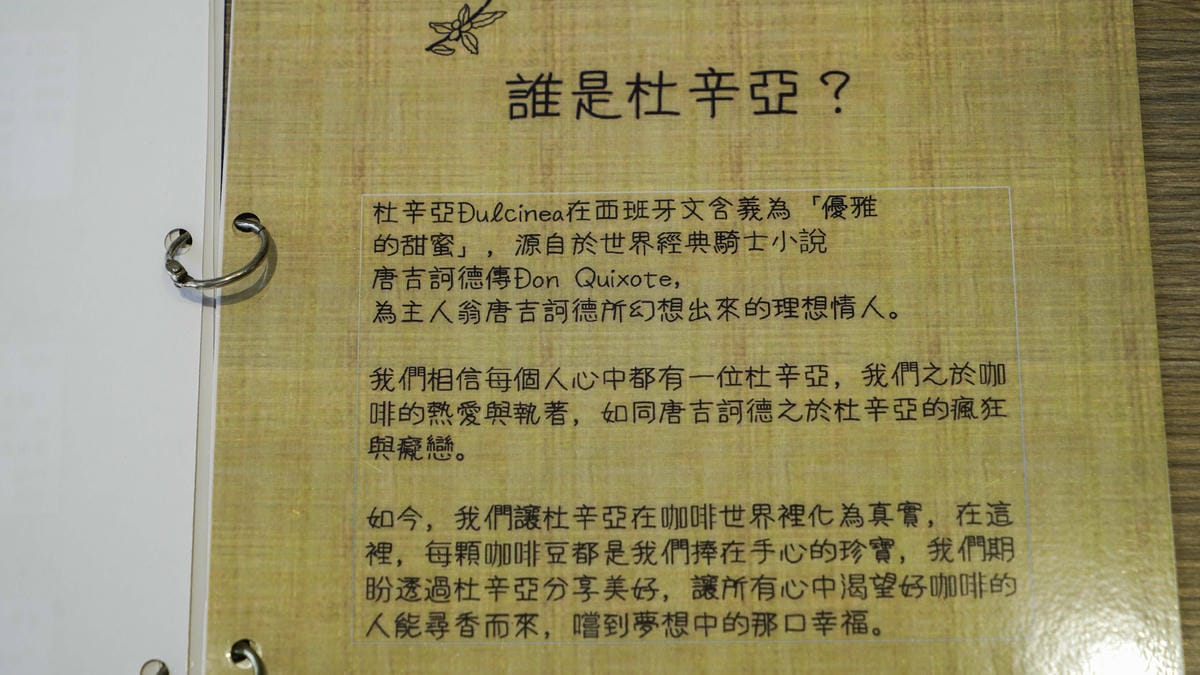 誰是杜辛亞？
杜辛亞Dulcinea在西班牙文含義為「優雅
的甜蜜」，源自於世界經典騎士小說
唐吉訶德傳Don Quixote,
為主人翁唐吉訶德所幻想出來的理想情人。
我們相信每個人心中都有一位杜辛亞，我們之於咖
啡的熱愛與執著，如同唐吉訶德之於杜辛亞的瘋狂
與癡戀。
如今，我們讓杜辛亞在咖啡世界裡化為真實，在這
裡，每顆咖啡豆都是我們捧在手心的珍寶，我們期
盼透過杜辛亞分享美好，讓所有心中渴望好咖啡的
人能尋香而來，嚐到夢想中的那口幸福。